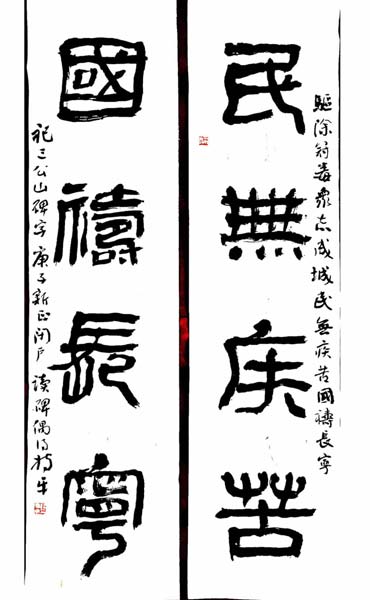 驅除毒眾志成城民無疾苦國禱長寧
民無疾苦
國禱長寧
祀三公山碑字 庚子新正閉戶讀碑偶得